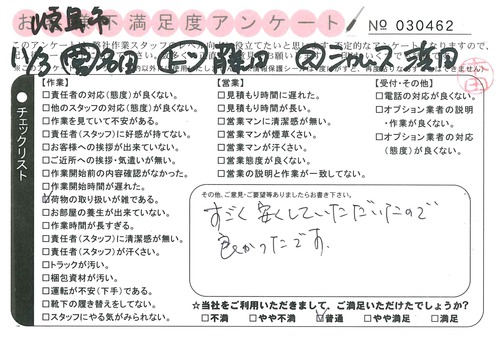 お客様不満足度アンケート
No 030462
【作業】
□責任者の対応(態度)が良くない。
□他のスタッフの対応(態度)が良くない。
□作業を見ていて不安がある。
□責任者(スタッフ)に好感が持てない。
□お客様への挨拶が出来ていない。
□ご近所への挨拶・気遣いが無い。
□作業開始前の内容確認がなかった。
□作業開始時間が遅れた。
☑荷物の取り扱いが雑である。
□お部屋の養生が出来ていない。
□作業時間が長すぎる。
□責任者(スタッフ)に清潔感が無い。
□責任者(スタッフ)が汗くさい。
□トラックが汚い。
□梱包資材が汚い。
□運転が不安(下手)である。
□靴下の履き替えをしてない。
□スタッフにやる気がみられない。
【営業】
□見積もり時間に遅れた。
□見積もり時間が長い。
□営業マンに清潔感が無い。
□営業マンが煙草くさい。
□営業マンが汗くさい。
□営業態度が良くない。
□営業の説明と作業が一致してない。
【受付・その他】
□電話の対応が良くない。
□オプション業者の説明
・作業が良くない。
□オプション業者の対応
(態度)が良くない。
●チェックリスト
その他、ご意見・ご要望等ありましたらお書き下さい。
すごく安くしていただいたので
良かったです。
☆当社をご利用いただきまして、ご満足いただけたでしょうか?
□不満 □やや不満 ☑普通 □やや満足 □満足